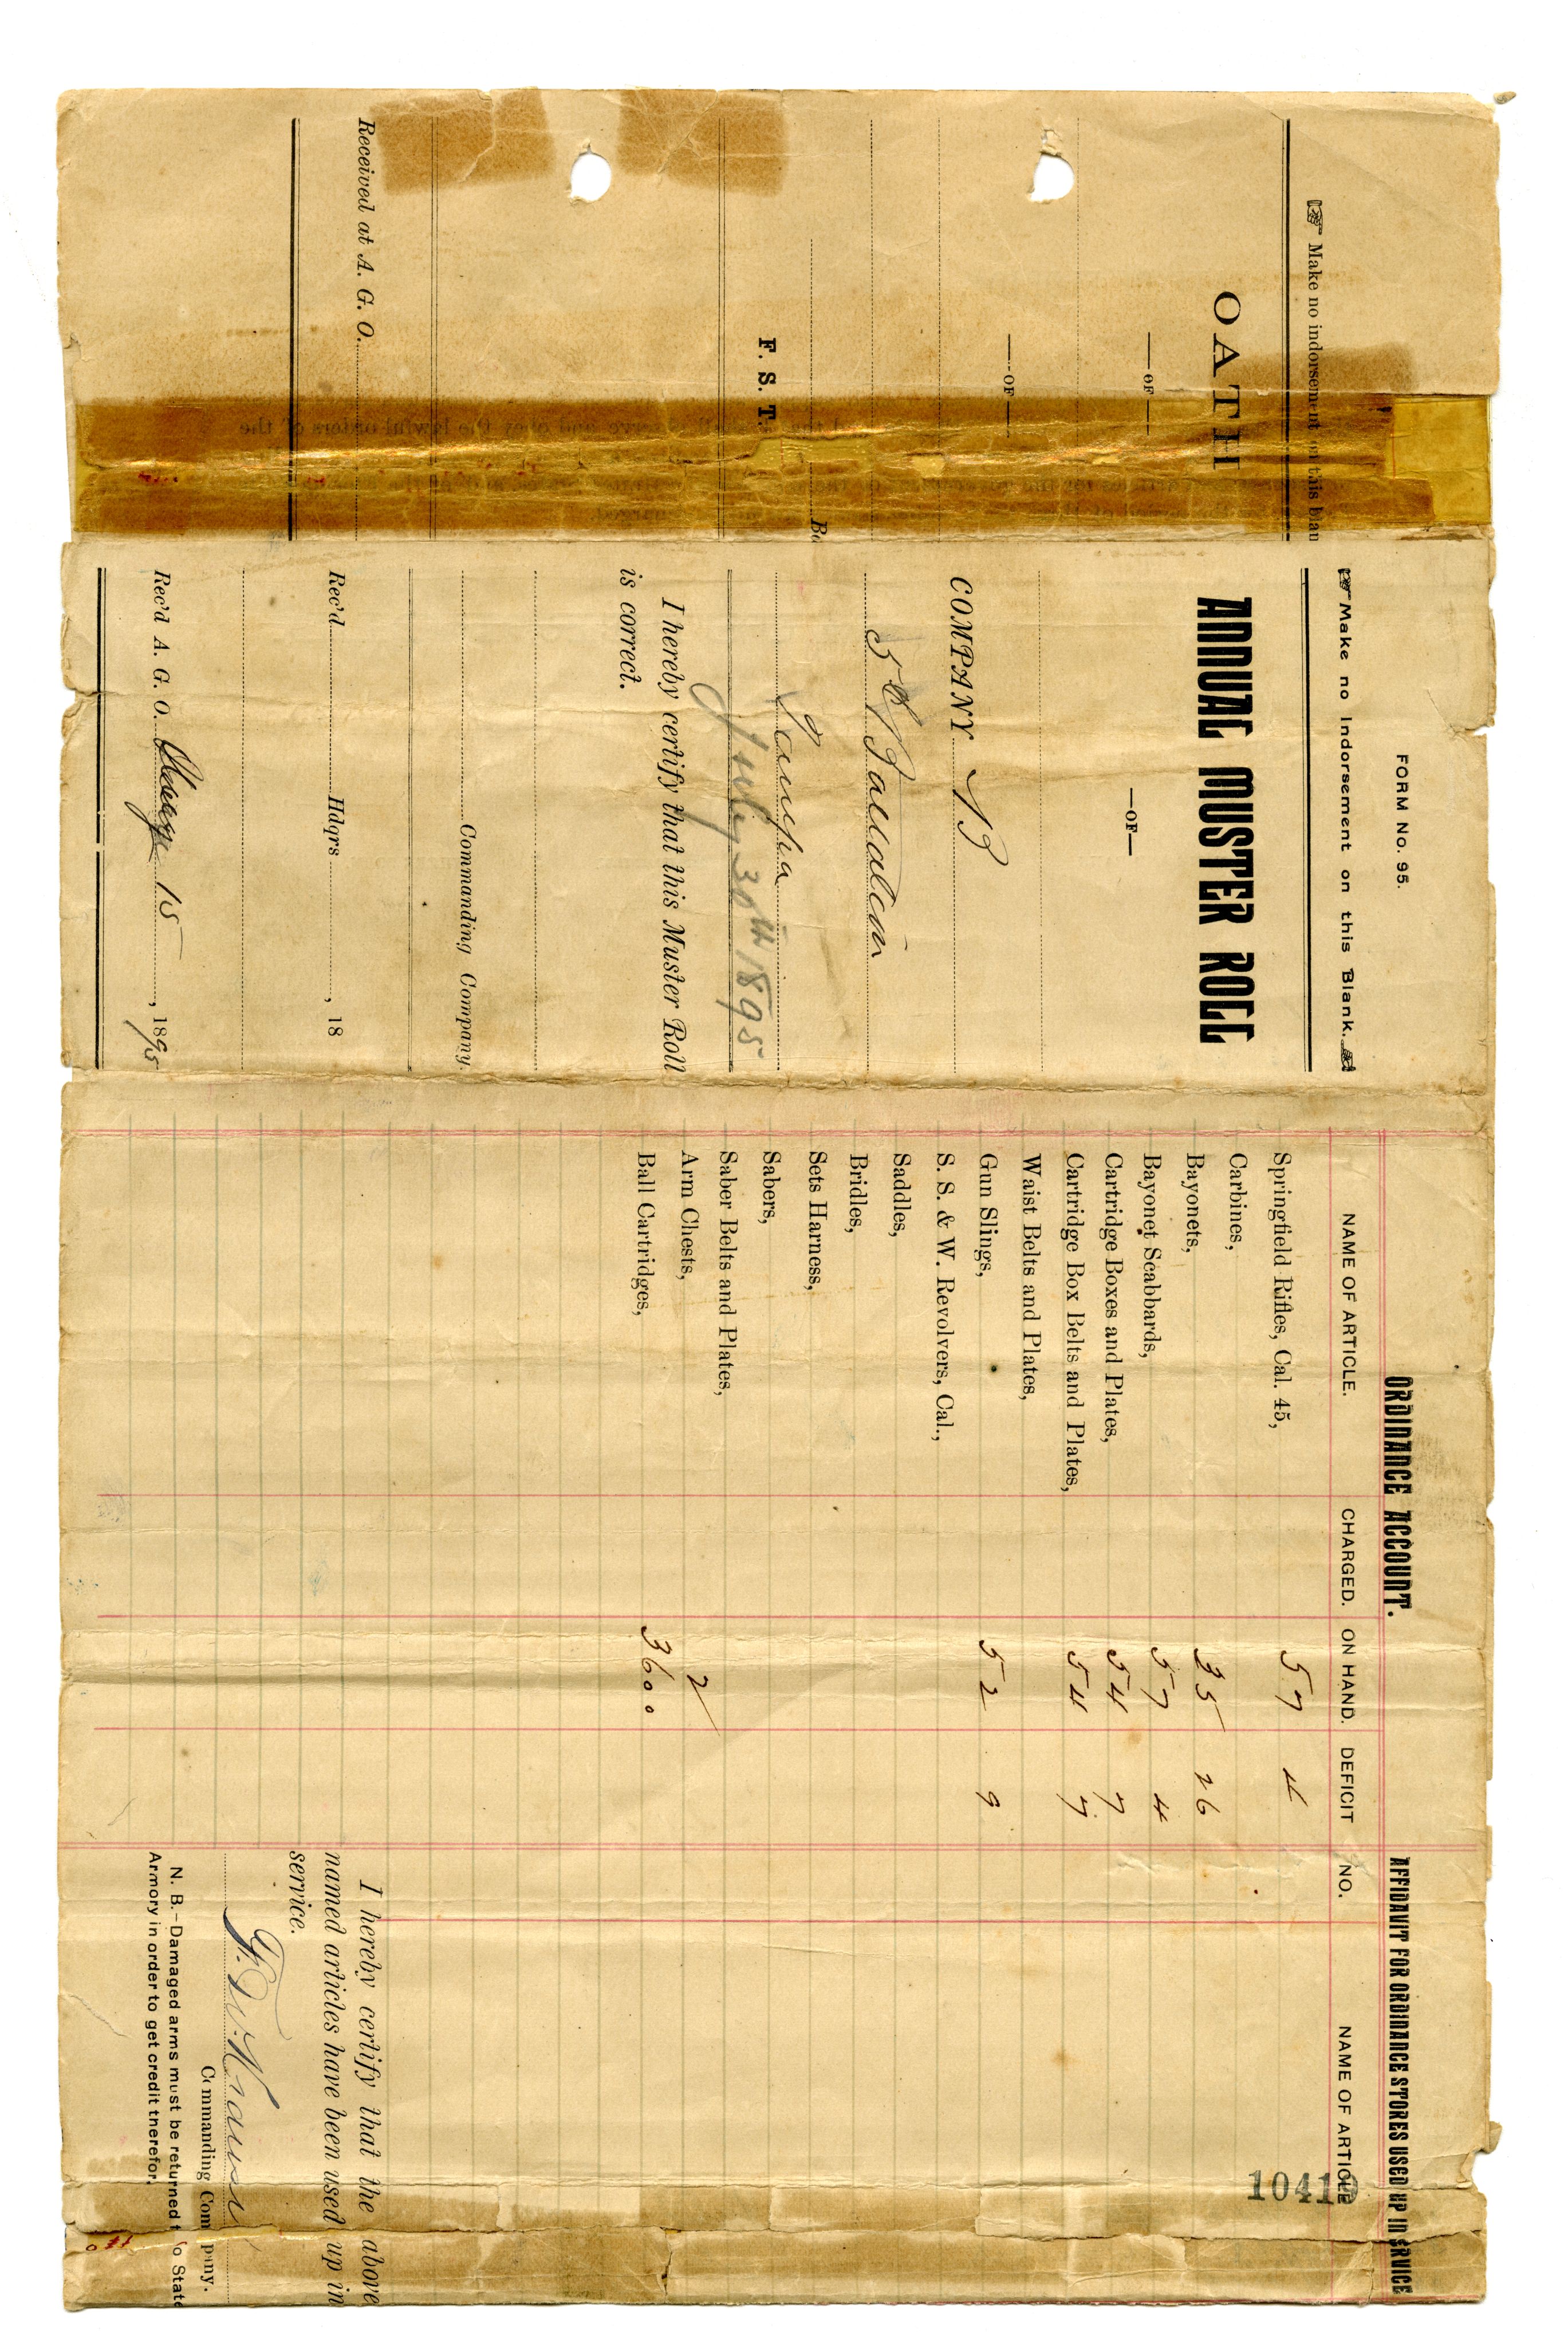 Make no indorsement on this blan
OATH
—OF—
—OF—
F. S. T.
Bo
Received at A. G. O.
FORM No. 95.
Make no Indorsement on this Blank.
ANNUAL MUSTER ROLL
—OF—
COMPANY B
5th Battalion
Tampa
July 30th 1895
I hereby certify that this Muster Roll
is correct.
Commanding Company.
Rec'd Hdqrs , 18
Rec'd A. G. O. 15 , 1895
ORDINANCE ACCOUNT.
NAME OF ARTICLE. CHARGED. ON HAND. DEFICIT
Springfield Rifles, Cal. 45, 57 4
Carbines,
Bayonets, 35 26
Bayonet Scabbards, 57 4
Cartridge Boxes and Plates, 54 7
Cartridge Box Belts and Plates, 54 7
Waist Belts and Plates,
Gun Slings, 52 9
S. S. & W. Revolvers, Cal.,
Saddles,
Bridles,
Sets Harness,
Sabers,
Saber Belts and Plates,
Arm Chests, 2
Ball Cartridges, 3600
AFFIDAVIT FOR ORDINANCE STORES USED UP IN SERVICE
NO. NAME OF ARTICLE
10419
I hereby certify that the above
named articles have been used up in
service.
Commanding Company.
N. B.—Damaged arms must be returned to State
Armory in order to get credit therefor.